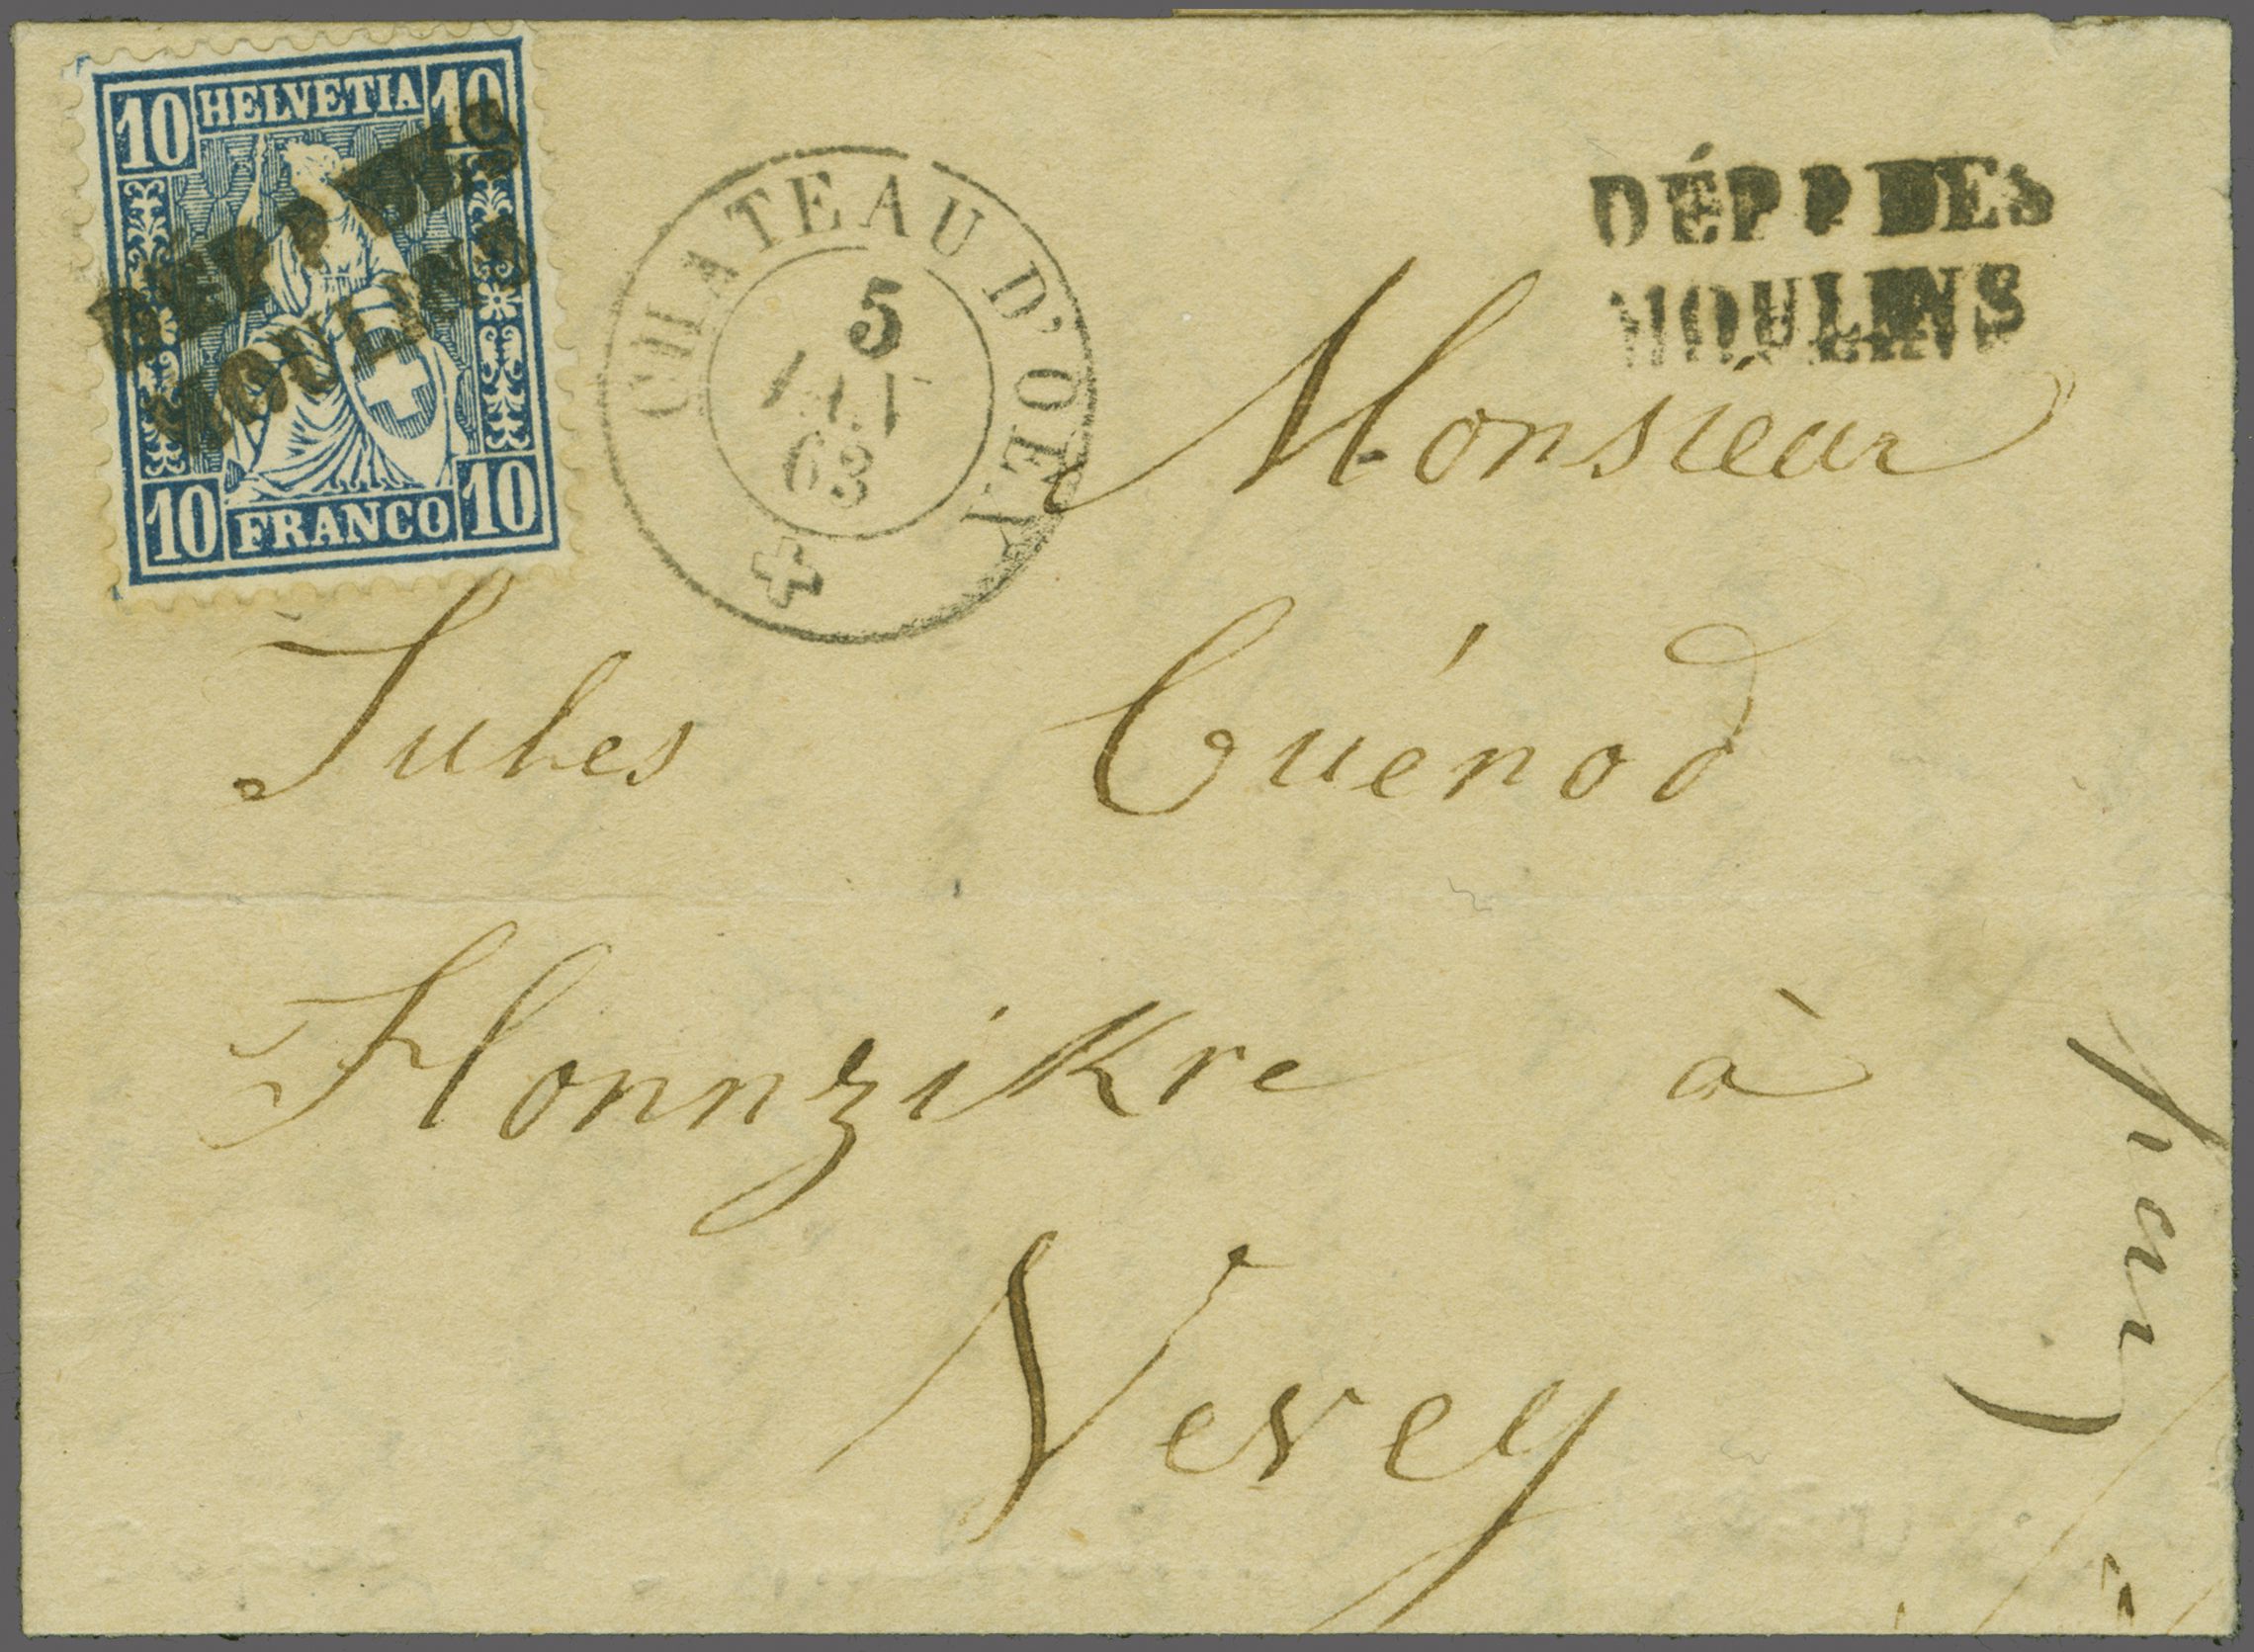 10 HELVETIA 10
10 FRANCO 10
DÉPT DES
MOULINS
CHATEAU D'OEX
5
63
DÉPT DES
MOULINS
Monsieur
Jules Cuénod
Honnzikre à
Vevey